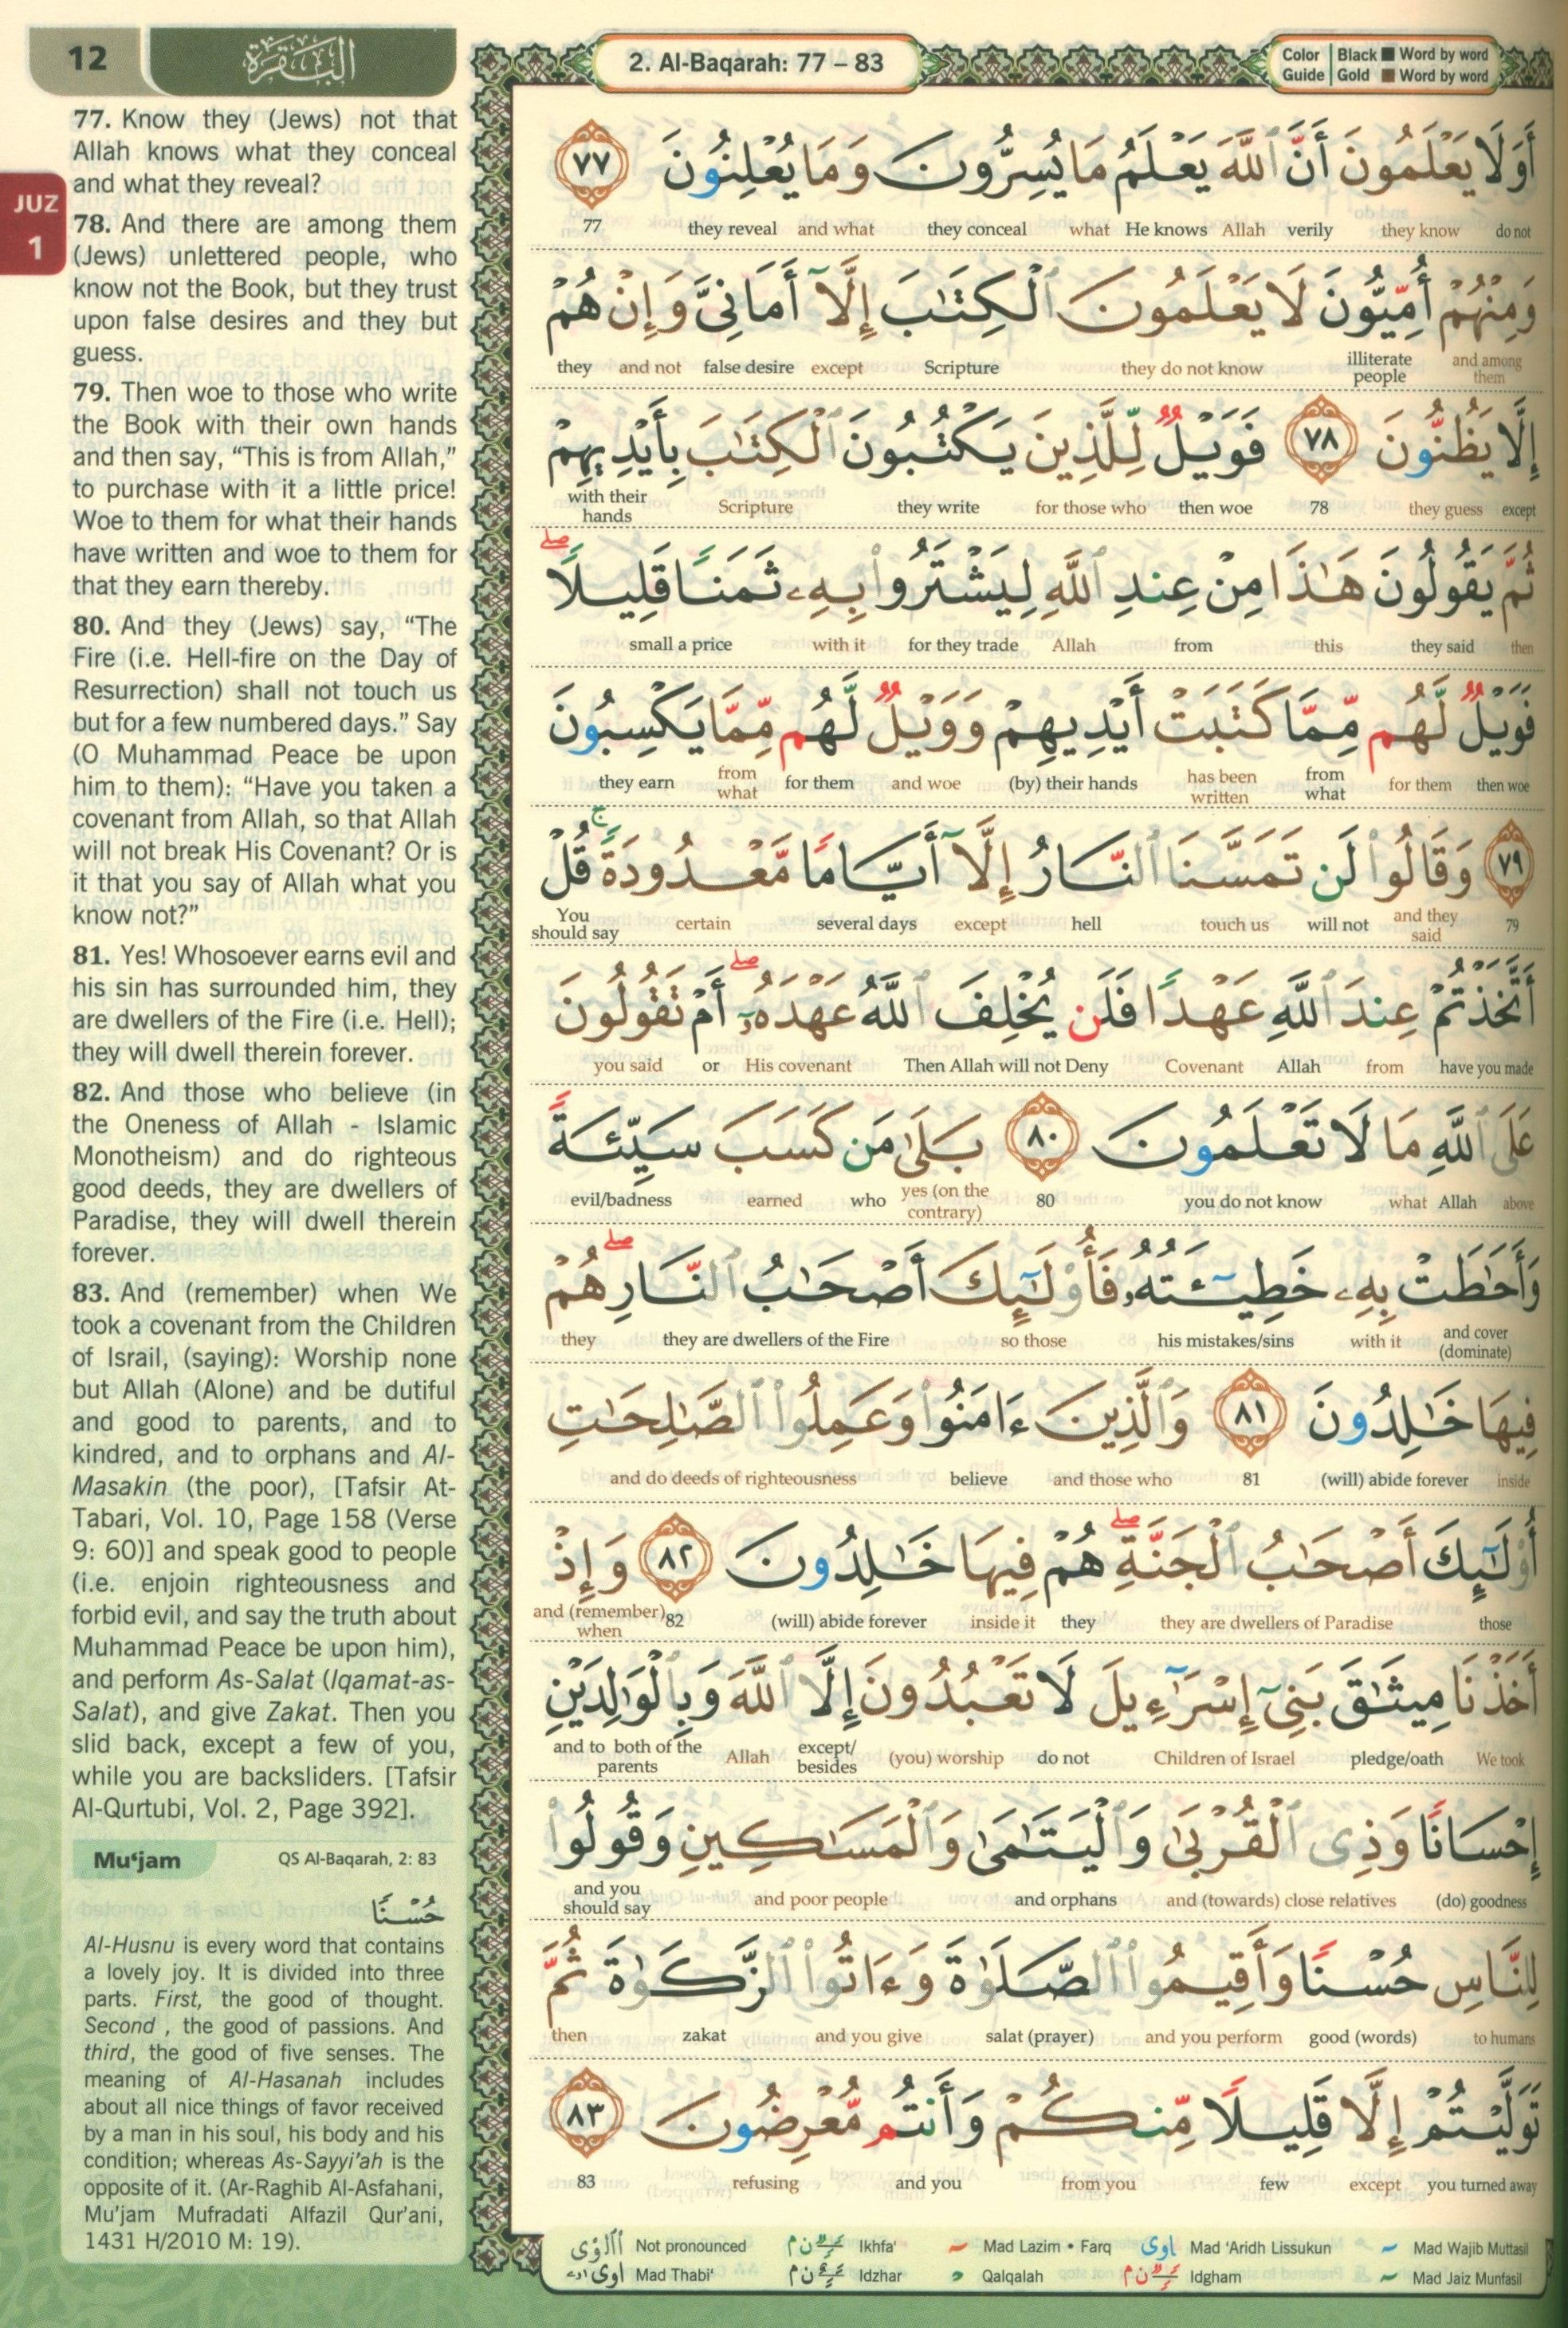 12
البقرة
2. Al-Baqarah: 77 – 83
Color Guide
Black ■ Word by word
Gold ■ Word by word
JUZ
1
77. Know they (Jews) not that
Allah knows what they conceal
and what they reveal?
78. And there are among them
(Jews) unlettered people, who
know not the Book, but they trust
upon false desires and they but
guess.
79. Then woe to those who write
the Book with their own hands
and then say, “This is from Allah,”
to purchase with it a little price!
Woe to them for what their hands
have written and woe to them for
that they earn thereby.
80. And they (Jews) say, “The
Fire (i.e. Hell-fire on the Day of
Resurrection) shall not touch us
but for a few numbered days.” Say
(O Muhammad Peace be upon
him to them): “Have you taken a
covenant from Allah, so that Allah
will not break His Covenant? Or is
it that you say of Allah what you
know not?”
81. Yes! Whosoever earns evil and
his sin has surrounded him, they
are dwellers of the Fire (i.e. Hell);
they will dwell therein forever.
82. And those who believe (in
the Oneness of Allah - Islamic
Monotheism) and do righteous
good deeds, they are dwellers of
Paradise, they will dwell therein
forever.
83. And (remember) when We
took a covenant from the Children
of Israil, (saying): Worship none
but Allah (Alone) and be dutiful
and good to parents, and to
kindred, and to orphans and Al-
Masakin (the poor), [Tafsir At-
Tabari, Vol. 10, Page 158 (Verse
9: 60)] and speak good to people
(i.e. enjoin righteousness and
forbid evil, and say the truth about
Muhammad Peace be upon him),
and perform As-Salat (Iqamat-as-
Salat), and give Zakat. Then you
slid back, except a few of you,
while you are backsliders. [Tafsir
Al-Qurtubi, Vol. 2, Page 392].
Mu‘jam
QS Al-Baqarah, 2: 83
حُسْنًا
Al-Husnu is every word that contains
a lovely joy. It is divided into three
parts. First, the good of thought.
Second , the good of passions. And
third, the good of five senses. The
meaning of Al-Hasanah includes
about all nice things of favor received
by a man in his soul, his body and his
condition; whereas As-Sayyi’ah is the
opposite of it. (Ar-Raghib Al-Asfahani,
Mu’jam Mufradati Alfazil Qur’ani,
1431 H/2010 M: 19).
أَوَلَا يَعْلَمُونَ أَنَّ ٱللَّهَ يَعْلَمُ مَا يُسِرُّونَ وَمَا يُعْلِنُونَ ٧٧
do not they know verily Allah He knows what they conceal and what they reveal 77
وَمِنْهُمْ أُمِّيُّونَ لَا يَعْلَمُونَ ٱلْكِتَٰبَ إِلَّآ أَمَانِىَّ وَإِنْ هُمْ
and among them illiterate people they do not know Scripture except false desire and not they
إِلَّا يَظُنُّونَ ٧٨ فَوَيْلٌ لِّلَّذِينَ يَكْتُبُونَ ٱلْكِتَٰبَ بِأَيْدِيهِمْ
except they guess 78 then woe for those who they write Scripture with their hands
ثُمَّ يَقُولُونَ هَٰذَا مِنْ عِندِ ٱللَّهِ لِيَشْتَرُوا۟ بِهِۦ ثَمَنًا قَلِيلًا ۖ
then they said this from Allah for they trade with it small a price
فَوَيْلٌ لَّهُم مِّمَّا كَتَبَتْ أَيْدِيهِمْ وَوَيْلٌ لَّهُم مِّمَّا يَكْسِبُونَ
then woe for them from what has been written (by) their hands and woe for them from what they earn
٧٩ وَقَالُوا۟ لَن تَمَسَّنَا ٱلنَّارُ إِلَّآ أَيَّامًا مَّعْدُودَةً ۚ قُلْ
79 and they said will not touch us hell except several days certain You should say
أَتَّخَذْتُمْ عِندَ ٱللَّهِ عَهْدًا فَلَن يُخْلِفَ ٱللَّهُ عَهْدَهُۥٓ ۖ أَمْ تَقُولُونَ
have you made from Allah Covenant Then Allah will not Deny His covenant or you said
عَلَى ٱللَّهِ مَا لَا تَعْلَمُونَ ٨٠ بَلَىٰ مَن كَسَبَ سَيِّئَةً
above Allah what you do not know 80 yes (on the contrary) who earned evil/badness
وَأَحَٰطَتْ بِهِۦ خَطِيٓـَٔتُهُۥ فَأُو۟لَٰٓئِكَ أَصْحَٰبُ ٱلنَّارِ ۖ هُمْ
and cover (dominate) with it his mistakes/sins so those they are dwellers of the Fire they
فِيهَا خَٰلِدُونَ ٨١ وَٱلَّذِينَ ءَامَنُوا۟ وَعَمِلُوا۟ ٱلصَّٰلِحَٰتِ
inside (will) abide forever 81 and those who believe and do deeds of righteousness
أُو۟لَٰٓئِكَ أَصْحَٰبُ ٱلْجَنَّةِ ۖ هُمْ فِيهَا خَٰلِدُونَ ٨٢ وَإِذْ
those they are dwellers of Paradise they inside it (will) abide forever 82 and (remember) when
أَخَذْنَا مِيثَٰقَ بَنِىٓ إِسْرَٰٓءِيلَ لَا تَعْبُدُونَ إِلَّا ٱللَّهَ وَبِٱلْوَٰلِدَيْنِ
We took pledge/oath Children of Israel do not (you) worship except/ besides Allah and to both of the parents
إِحْسَانًا وَذِى ٱلْقُرْبَىٰ وَٱلْيَتَٰمَىٰ وَٱلْمَسَٰكِينِ وَقُولُوا۟
(do) goodness and (towards) close relatives and orphans and poor people and you should say
لِلنَّاسِ حُسْنًا وَأَقِيمُوا۟ ٱلصَّلَوٰةَ وَءَاتُوا۟ ٱلزَّكَوٰةَ ثُمَّ
to humans good (words) and you perform salat (prayer) and you give zakat then
تَوَلَّيْتُمْ إِلَّا قَلِيلًا مِّنكُمْ وَأَنتُم مُّعْرِضُونَ ٨٣
you turned away except few from you and you refusing 83
Not pronounced Ikhfa‘ Mad Lazim • Farq Mad ‘Aridh Lissukun Mad Wajib Muttasil
Mad Thabi‘ Idzhar Qalqalah Idgham Mad Jaiz Munfasil